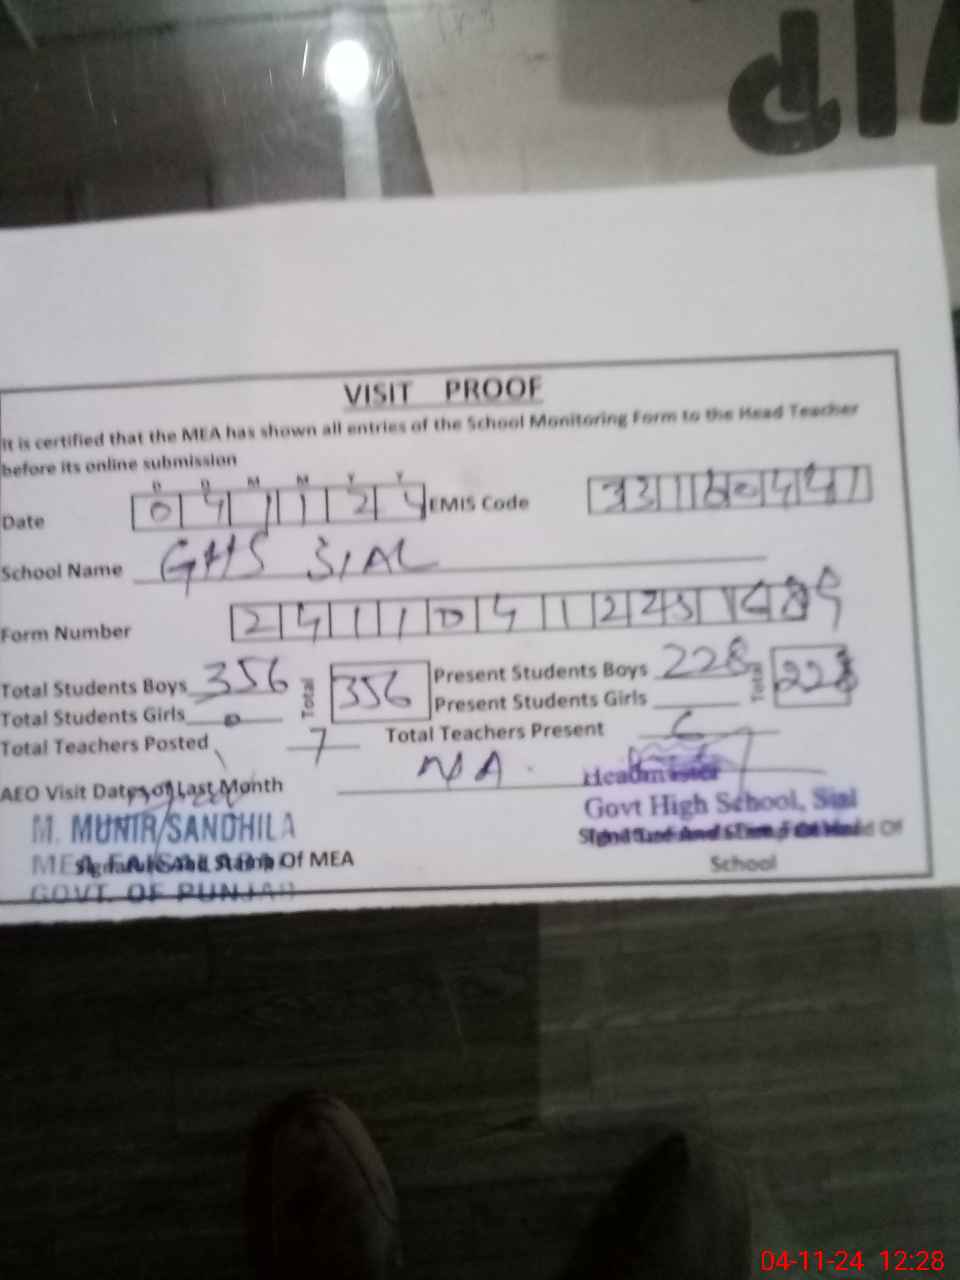 VISIT PROOF
It is certified that the MEA has shown all entries of the School Monitoring Form to the Head Teacher
before its online submission
D D M M Y Y
Date 04 11 24 EMIS Code
School Name GHS SIAL
Form Number
Total Students Boys 356 Total 356 Present Students Boys 228 Total 228
Total Students Girls 0 Present Students Girls
Total Teachers Posted 7 Total Teachers Present 6
AEO Visit Dates of Last Month NA
Headmaster
Govt High School, Sial
M. MUNIR SANDHILA
Signature And Stamp Of Head Of
School
MEA FAISALABAD
Signature And Stamp Of MEA
GOVT. OF PUNJAB
04-11-24 12:28